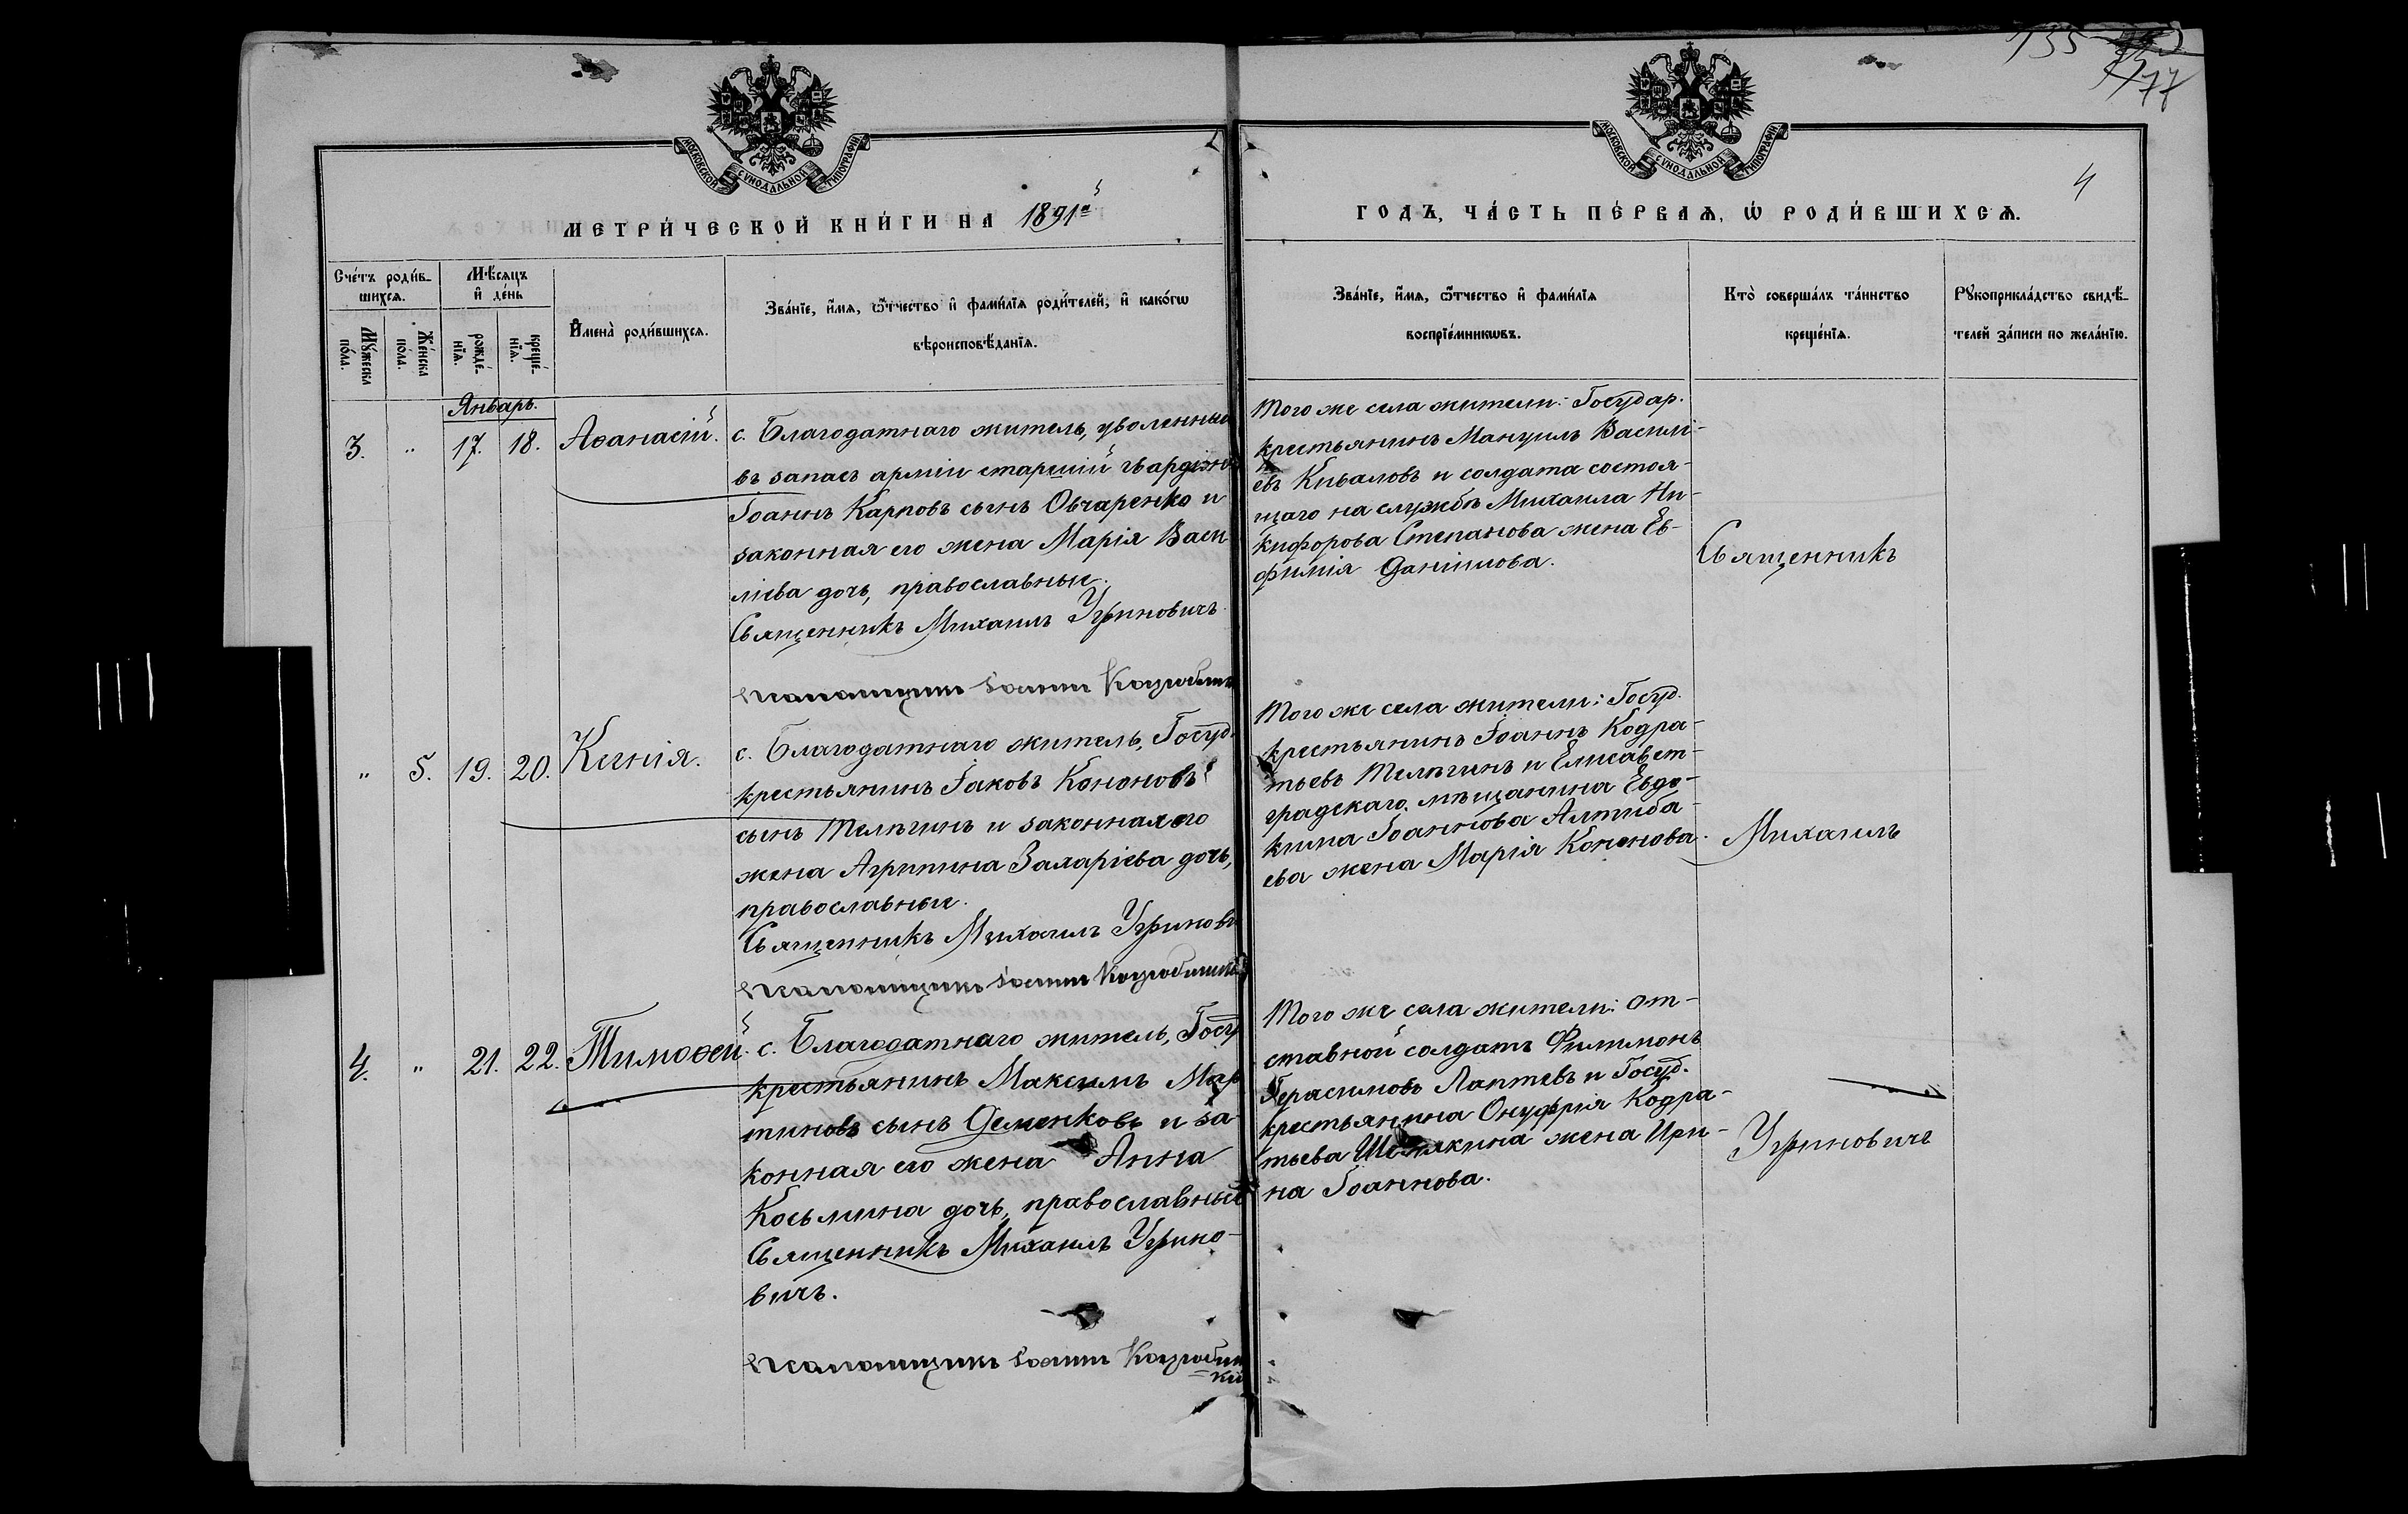 135
177
4
МОСКОВСКОЙ СУНОДАЛЬНОЙ ТИПОГРАФІИ
МОСКОВСКОЙ СУНОДАЛЬНОЙ ТИПОГРАФІИ
МЕТРИ́ЧЕСКОЙ КНИ́ГИ НА 1891й
ГОДЪ, ЧА́СТЬ ПЕ́РВАѦ, Ѡ҆ РОДИ́ВШИХСѦ.
Сче́тъ роди́в-
шихсѧ.
Мꙋ́жеска
по́ла.
Же́нска
по́ла.
Мѣ́сѧцъ
и҆ де́нь
рожде́-
нїѧ.
креще́-
нїѧ.
И҆мена̀ роди́вшихсѧ.
Зва́нїе, и҆́мѧ, ѻ҆́тчество и҆ фами́лїѧ роди́телей, и҆ како́гѡ
вѣроисповѣ́данїѧ.
Зва́нїе, и҆́мѧ, ѻ҆́тчество и҆ фами́лїѧ
воспрїе́мникѡвъ.
Кто̀ соверша́лъ та́инство
креще́нїѧ.
Рꙋкоприкла́дство свидѣ́-
телей за́писи по жела́нїю.
Январь.
3. " 17. 18. Аѳанасій.
с. Благодатнаго житель, уволенный
въ запасъ арміи старшій
Іоаннъ Карповъ сынъ Овчаренко и
законная его жена Марія Васи-
ліева дочь, православные.
Священникъ Михаилъ Угриновичъ
Псаломщикъ Іоаннъ
Того же села жители: Государ.
крестьянинъ Мануилъ Василі-
евъ Киваловъ и солдата состоя-
щаго на службѣ Михаила Ни-
кифорова Степанова жена Ев-
фимія Даніилова.
Священникъ
" 5. 19. 20. Ксенія.
с. Благодатнаго житель, Госуд.
крестьянинъ Іаковъ Кононовъ
сынъ Телѣгинъ и законная его
жена Агрипина Захаріева дочь,
православные.
Священникъ Михаилъ Угринови
Псаломщикъ Іоаннъ
Того же села жители: Госуд.
крестьянинъ Іоаннъ Кодра-
тьевъ Телѣгинъ и Елисавет-
градскаго мѣщанина Евдо-
кима Іоаннова Алтиба-
ева жена Марія Кононова.
Михаилъ
4. " 21. 22. Тимоѳей.
с. Благодатнаго житель, Госу
крестьянинъ Максимъ Мар
тиновъ сынъ Деменковъ и за-
конная его жена Анна
Косьмина дочь, православные
Священникъ Михаилъ Угрино-
вичъ.
Псаломщикъ Іоаннъ
Того же села жители: от-
ставной солдатъ Филимонъ
Герасимовъ Лаптевъ и Госуд.
крестьянина Онуфрія Кодра-
тьева жена Ири-
на Іоаннова.
Угриновичъ